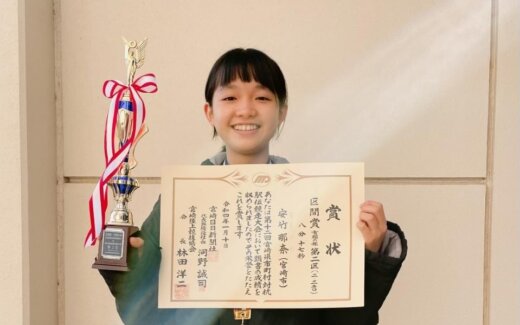 賞状
区間賞 第二区
八分十七秒
安竹 那奈(宮崎市)
あなたは第十二回宮崎県市町村対抗
駅伝競走大会において頭書の成績を
収められましたのでその栄誉をたたえ
これを賞します
令和四年一月十日
宮崎日日新聞社
河野誠司
宮崎陸上競技協会
会長 林田洋二